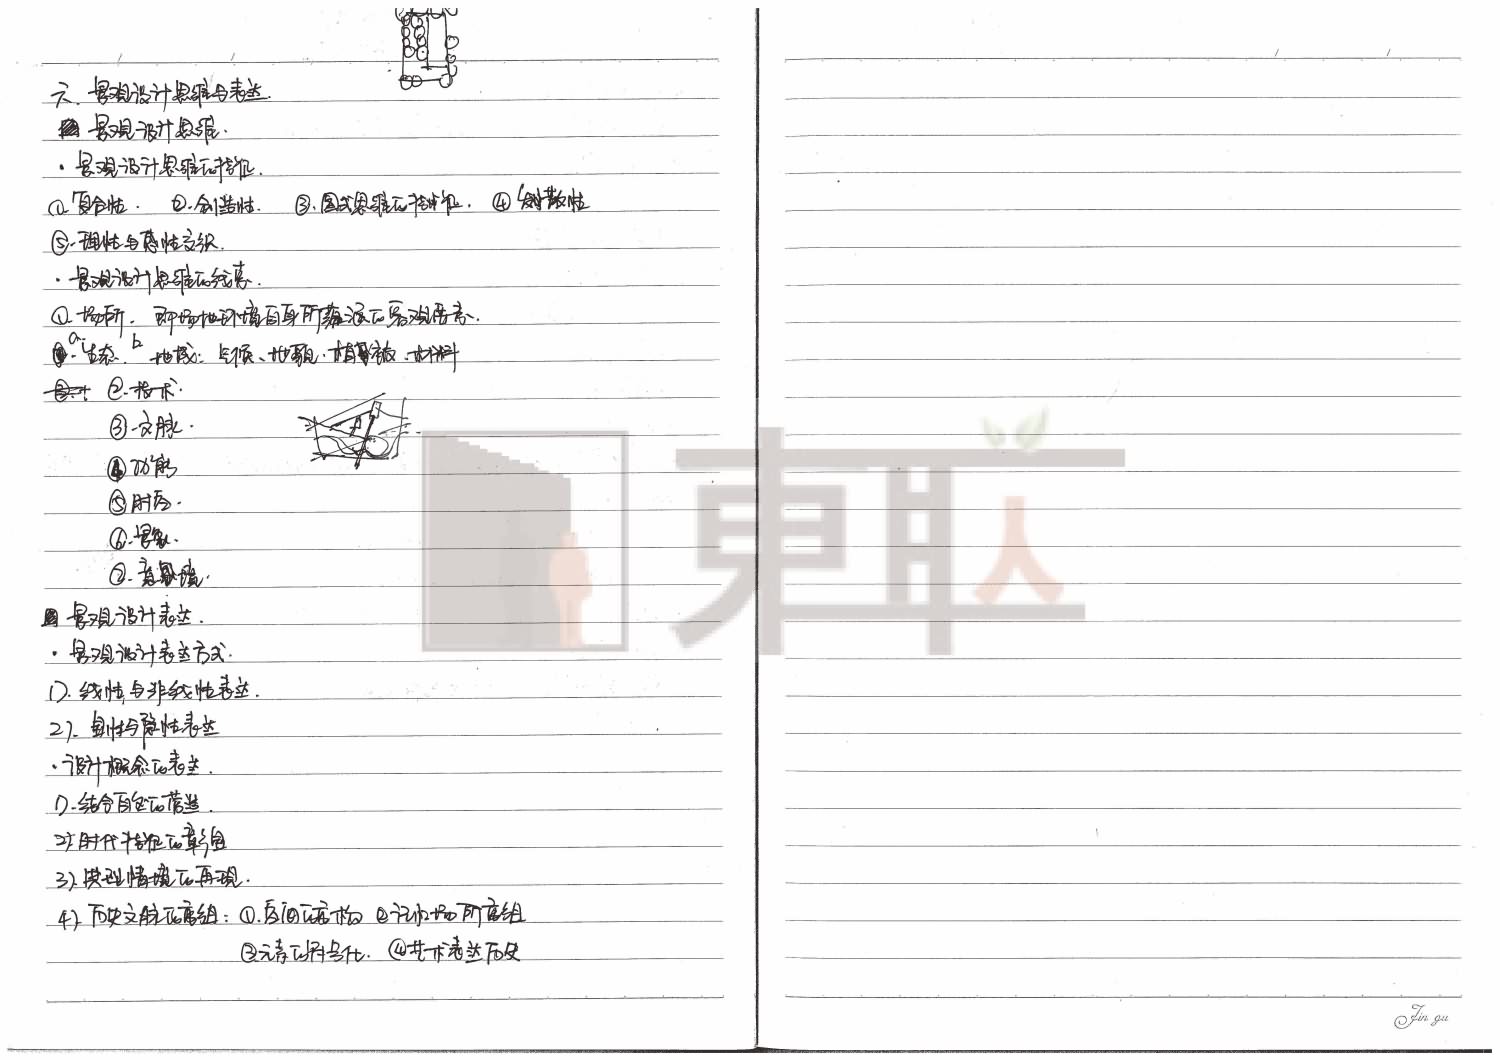 六. 景观设计思维与表达.
景观设计思维.
· 景观设计思维的特征.
①.复合性. ②.创造性. ③.图式思维的特征. ④ 发散性
⑤.理性与感性交织.
· 景观设计思维的线索.
①.场所. 即场地环境自身所蕴涵的客观信息.
a.生态. b 地域: 气候、地貌.植被.材料
②.技术.
③.文脉.
④功能
⑤时空.
⑥.景象.
⑦.意境.
景观设计表达.
· 景观设计表达方式.
1).线性与非线性表达.
2).显性与隐性表达
·设计概念的表达.
1).结合自然的营造.
2)时代特征的彰显
3).典型情境的再现.
4).历史文脉的重组: ①.原旧的重构 ②记忆场所重组
③元素的符号化. ④艺术表达历史
東联人
Jin gu